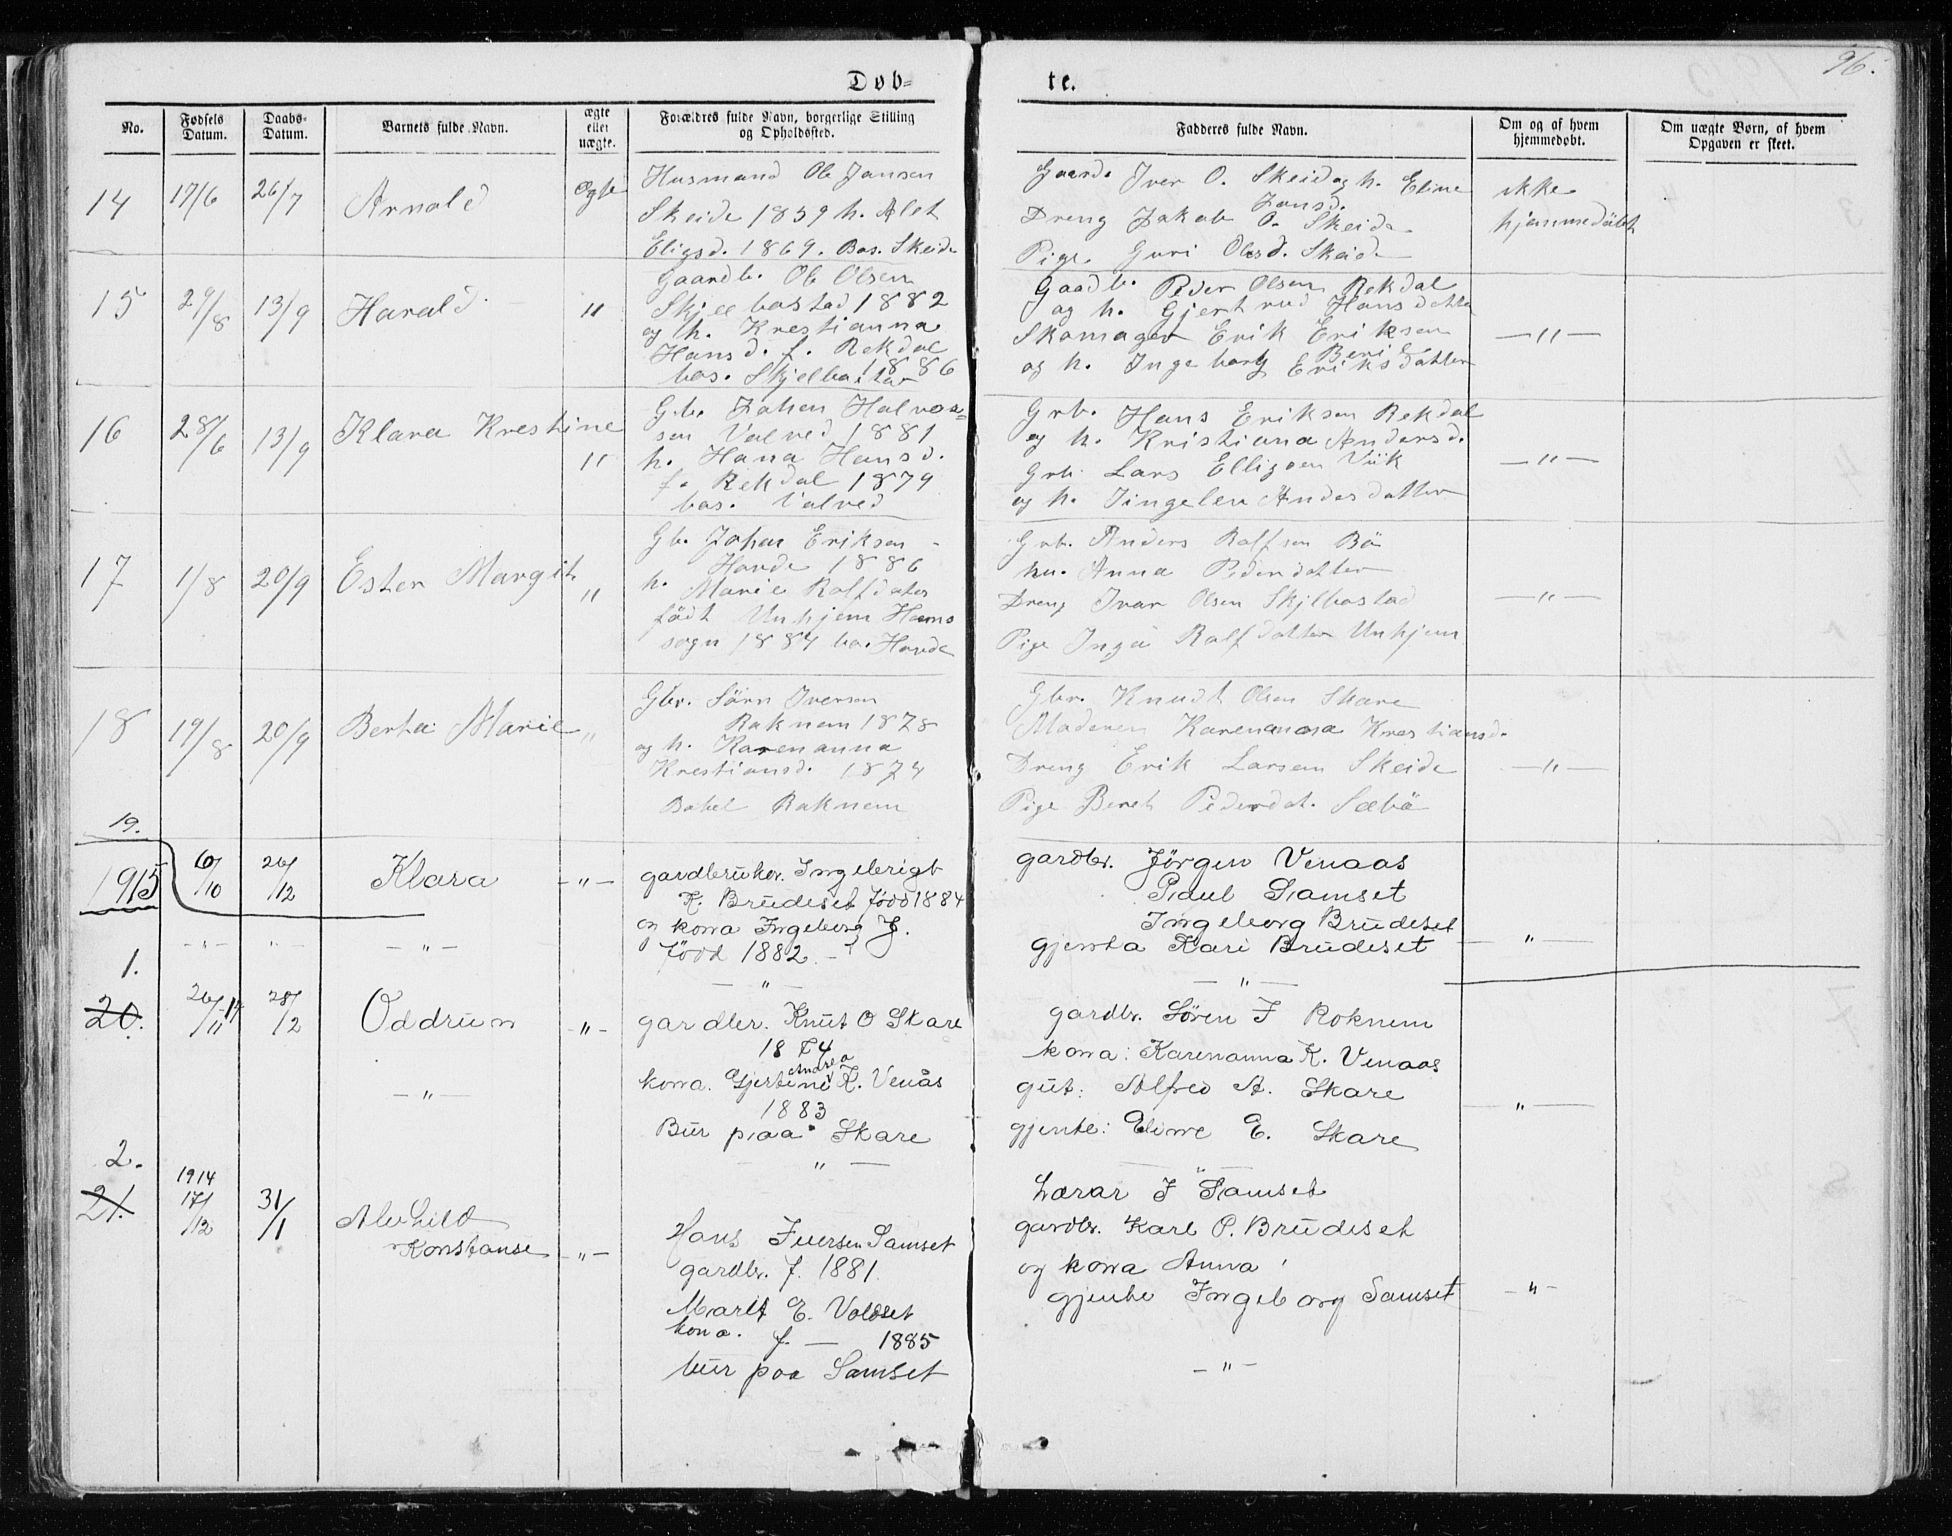 96.
Døb= te.
No. Fødsels Datum. Daabs-Datum. Barnets fulde Navn. ægte eller uægte. Forældres fulde Navn, borgerlige Stilling og Opholdsted. Fadderes fulde Navn. Om og af hvem hjemmedøbt. Om uægte Børn, af hvem Opgaven er skeet.
14 17/6 26/7 Arnold Ægte
Husmand Ole Jansen
Skeide 1859 h. Alet
1869. Bos. Skeide
Gaardb. Iver O. Skeide og h. Eline
Jansd.
Dreng Jakob O. Skeide
Pige. Guri Olesd. Skeide
ikke
hjemmedöbt
15 29/8 13/9 Harald "
Gaardb. Ole Olsen
Skjelbostad 1882
og h. Krestianna
Hansd. f. Rekdal
1886
bos. Skjelbostad
Gaadb. Peder Olsen Rekdal
og h. Gjertrud Hansdatter
Skomager Erik Eriksen
og h. Ingeborg Eriksdatter
—"—
16 28/6 13/9 Klara Krestine "
G.b. Johan Halvor=
sen Valved 1881
h. Hana Hansd.
f. Rekdal 1879
bos. Valved
Grb. Hans Eriksen Rekdal
og h. Kristiana Andersd.
Grb. Lars Elligsen Viik
og h. Andersdatter
—"—
17 1/8 20/9 Ester Margit "
Gb. Johan Eriksen
Harde 1886
h. Marie Rolfdater
födt Unhjem
sogn 1884 bo. Harde
Grb. Anders Rolfsen Bö
hu. Anna Pederdatter
Dreng Ivar Olsen Skjelbostad
Pige Inga Rolfdatter Unhjem
—"—
18 19/8 20/9 Berta Marie "
Gbr. Sörn Iversen
Raknem 1878
og h. Karenanna
Krestiansd. 1874
Bohel Raknem
Gbr. Knudt Olsen Skare
Moderen Karenanna Krestiansd.
Dreng Erik Larsen Skeide
Pige Beret Pederdat. Sæbö
—"—
19.
1915 6/10 26/12 Klara —"—
gardbrukar. Ingebrigt
K. Brudeset född 1884
og kona Ingeborg J.
född 1882. —
—"—
gardbr. Jørgen Venaas
Paul Samset
Ingeborg Brudeset
gjenta Kari Brudeset
—"—
—"—
—"— —"— —"—
1.
20. 26/11 14 28/2 Oddrun —"—
gardbr. Knut O Skare
1874
Andrea
kona. Gjertine K. Venås
1883
Bur paa Skare
—"—
gardbr. Søren I Roknem
kona: Karenanna K. Venaas
gut: Alfred A. Skare
gjente: Eline E. Skare
—"—
—"—
2.
21. 1914 17/12 31/1 Alvhild
Konstanse —"—
Hans Iversen Samset
gardbr. f. 1881.
Marit E. Voldset
kona. f. — 1885
bur paa Samset
Lærar I Samset
gardbr. Karl P. Brudeset
og kona Anna
gjente Ingeborg Samset
—"—
—"—